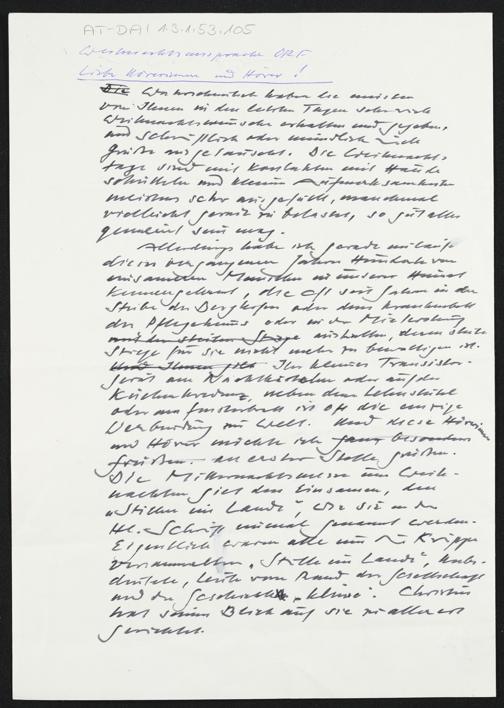 AT-DAI 1.3.1.53.105
Weihnachtsansprache ORF
Liebe Hörerinnen und Hörer!
Die Wahrscheinlich haben die meisten
von Ihnen in den letzten Tagen sehr viele
Weihnachtswünsche erhalten und gegeben,
und schriftlich oder mündlich viele
Grüße ausgetauscht. Die Weihnachts-
tage sind mit Kontakten mit Hände
schütteln und kleinen Aufmerksamkeiten
meistens sehr ausgefüllt, manchmal
vielleicht geradezu belastet, so gut alles
gemeint sein mag.
Allerdings habe ich gerade im Laufe
dieses vergangenen Jahres Hunderte von
einsamen Menschen in unserer Heimat
kennengelernt, die oft seit Jahren in der
Stube des Berghofes oder dem Krankenbett
des Pflegeheims oder in der Mietwohnung
aushalten, deren steile
Stiege für sie nicht mehr zu bewältigen ist.
Und Ihnen gilt Ihr kleines Transistor-
gerät am Nachtkästchen oder auf der
Küchenkredenz, neben dem Lehnstuhl
oder am Fensterbrett ist oft die einzige
Verbindung zur Welt. Und diese Hörerinnen
und Hörer möchte ich ganz besonders
grüßen. an erster Stelle grüßen.
Die Mitternachtsmesse um Weih-
nachten gilt den Einsamen, den
„Stillen im Lande", wie sie in der
Hl. Schrift einmal genannt werden.
Eigentlich waren alle um die Krippe
versammelten „Stille im Lande",
Leute vom Rand der Gesellschaft
und der Geschichte, „kleine". Christus
hat seinen Blick auf sie zu allererst
gerichtet.